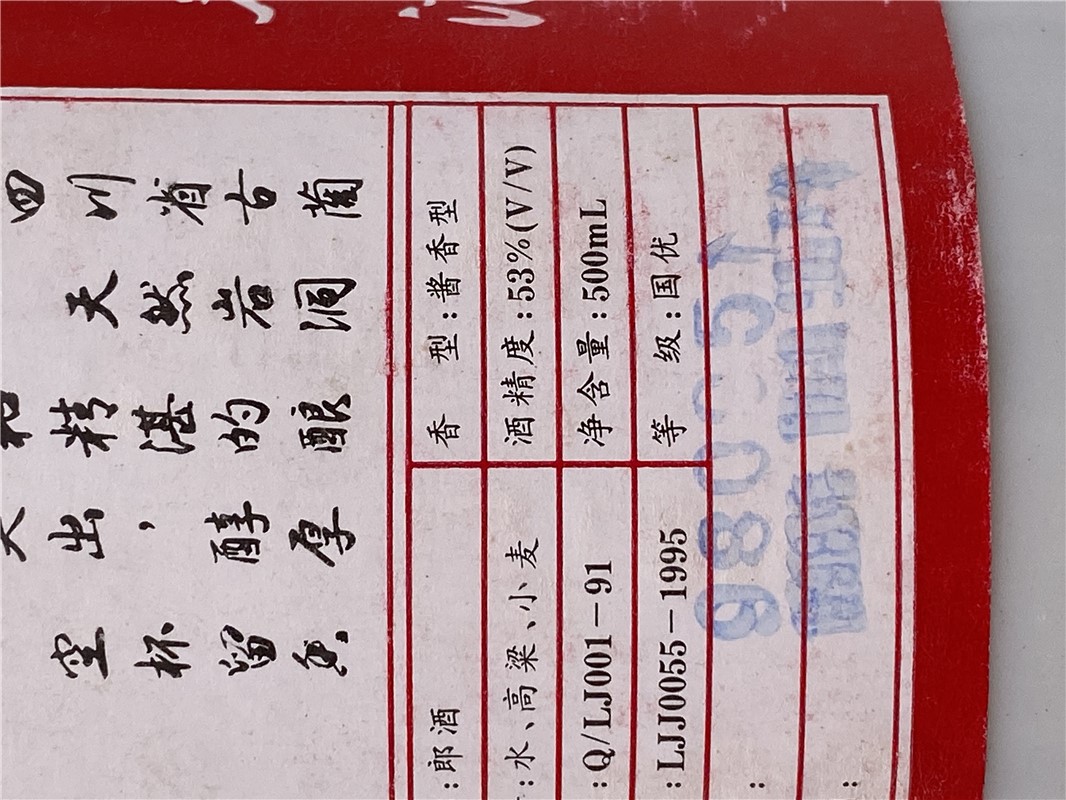 四川省古蔺
天然岩洞
和精湛的酿
出，醇厚
空杯留香
:郎酒
香 型:酱香型
:水、高粱、小麦
酒精度:53%(V/V)
:Q/LJ001-91
净含量:500mL
:LJJ0055-1995
等 级:国优
:
: